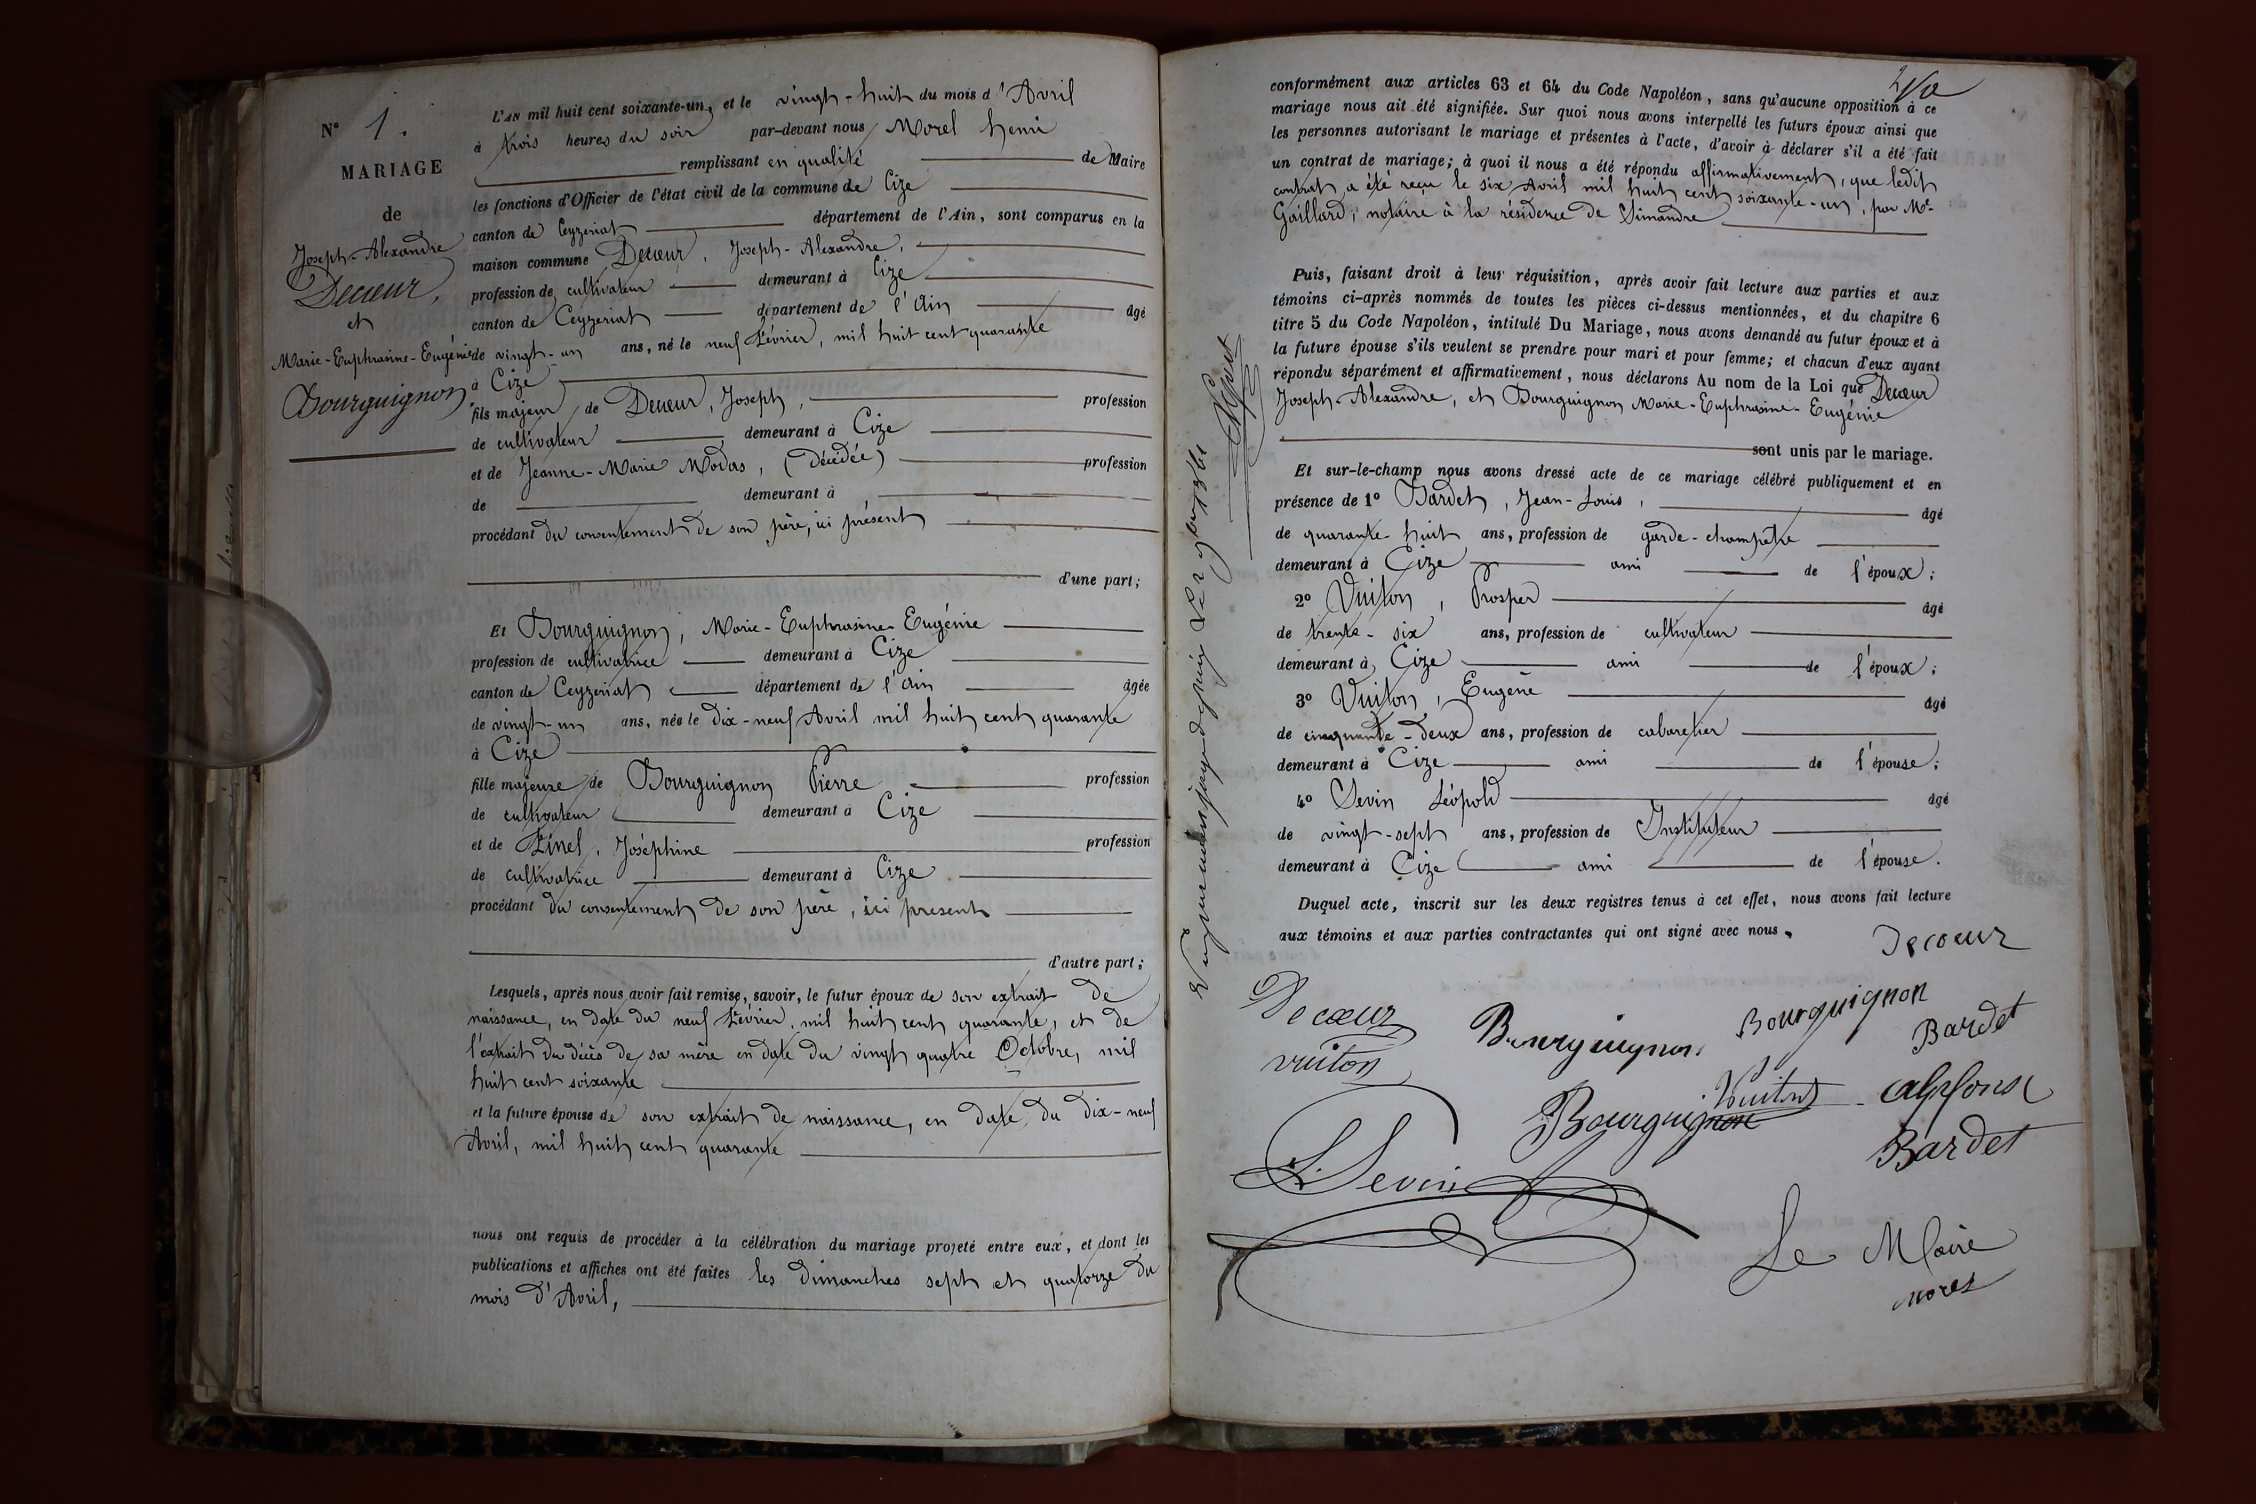 N° 1.
MARIAGE
de
Joseph-Alexandre
Decœur,
et
Marie-Euphrasine-Eugénie
Bourguignon
L'AN mil huit cent soixante-un, et le vingt-huit du mois d'Avril
à trois heures du soir par-devant nous Morel henri
remplissant en qualité de Maire
les fonctions d'Officier de l'état civil de la commune de Cize
canton de Ceyzeriat département de l'Ain, sont comparus en la
maison commune Decœur, Joseph-Alexandre,
profession de cultivateur demeurant à Cize
canton de Ceyzeriat département de l'Ain âgé
de vingt-un ans, né le neuf Février, mil huit cent quarante
à Cize
fils majeur de Decœur, Joseph, profession
de cultivateur demeurant à Cize
et de Jeanne-Marie Modas, (Décédée) profession
de demeurant à
procédant du consentement de son père, ici présent
d'une part;
Et Bourguignon, Marie-Euphrasine-Eugénie
profession de cultivatrice demeurant à Cize
canton de Ceyzeriat département de l'Ain âgée
de vingt-un ans, née le dix-neuf Avril mil huit cent quarante
à Cize
fille majeure de Bourguignon Pierre profession
de cultivateur demeurant à Cize
et de Finel, Joséphine profession
de cultivatrice demeurant à Cize
procédant du consentement de son père, ici present
d'autre part;
Lesquels, après nous avoir fait remise, savoir, le futur époux de son extrait de
naissance, en date du neuf Février, mil huit cent quarante, et de
l'extrait du décès de sa mère en date du vingt quatre Octobre, mil
huit cent soixante
et la future épouse de son extrait de naissance, en date du dix-neuf
Avril, mil huit cent quarante
nous ont requis de procéder à la célébration du mariage projeté entre eux, et dont les
publications et affiches ont été faites les dimanches sept et quatorze du
mois d'Avril,
conformément aux articles 63 et 64 du Code Napoléon, sans qu'aucune opposition à ce
mariage nous ait été signifiée. Sur quoi nous avons interpellé les futurs époux ainsi que
les personnes autorisant le mariage et présentes à l'acte, d'avoir à déclarer s'il a été fait
un contrat de mariage; à quoi il nous a été répondu affirmativement, que ledit
contrat a été reçu le six Avril mil huit cent soixante-un, par Me
Gaillard, notaire à la résidence de Simandre
Puis, faisant droit à leur réquisition, après avoir fait lecture aux parties et aux
témoins ci-après nommés de toutes les pièces ci-dessus mentionnées, et du chapitre 6
titre 5 du Code Napoléon, intitulé Du Mariage, nous avons demandé au futur époux et à
la future épouse s'ils veulent se prendre pour mari et pour femme; et chacun d'eux ayant
répondu séparément et affirmativement, nous déclarons Au nom de la Loi que Decœur
Joseph-Alexandre, et Bourguignon Marie-Euphrasine-Eugénie
sont unis par le mariage.
Et sur-le-champ nous avons dressé acte de ce mariage célébré publiquement et en
présence de 1° Bardet, Jean-Louis, âgé
de quarante-huit ans, profession de garde-champêtre
demeurant à Cize ami de l'époux;
2° Vuiton, Prosper âgé
de trente-six ans, profession de cultivateur
demeurant à Cize ami de l'époux;
3° Vuiton, Eugene âgé
de cinquante-deux ans, profession de cabaretier
demeurant à Cize ami de l'épouse;
4° Sevin Léopold âgé
de vingt-sept ans, profession de Instituteur
demeurant à Cize ami de l'épouse.
Duquel acte, inscrit sur les deux registres tenus à cet effet, nous avons fait lecture
aux témoins et aux parties contractantes qui ont signé avec nous.
Decoeur
Decœur
Bourguignon
Bourguignon
Bardet
vuiton
Vuiton
Alphonse
Bourguignon
Bardet
L. Sevin
Le Maire
morel